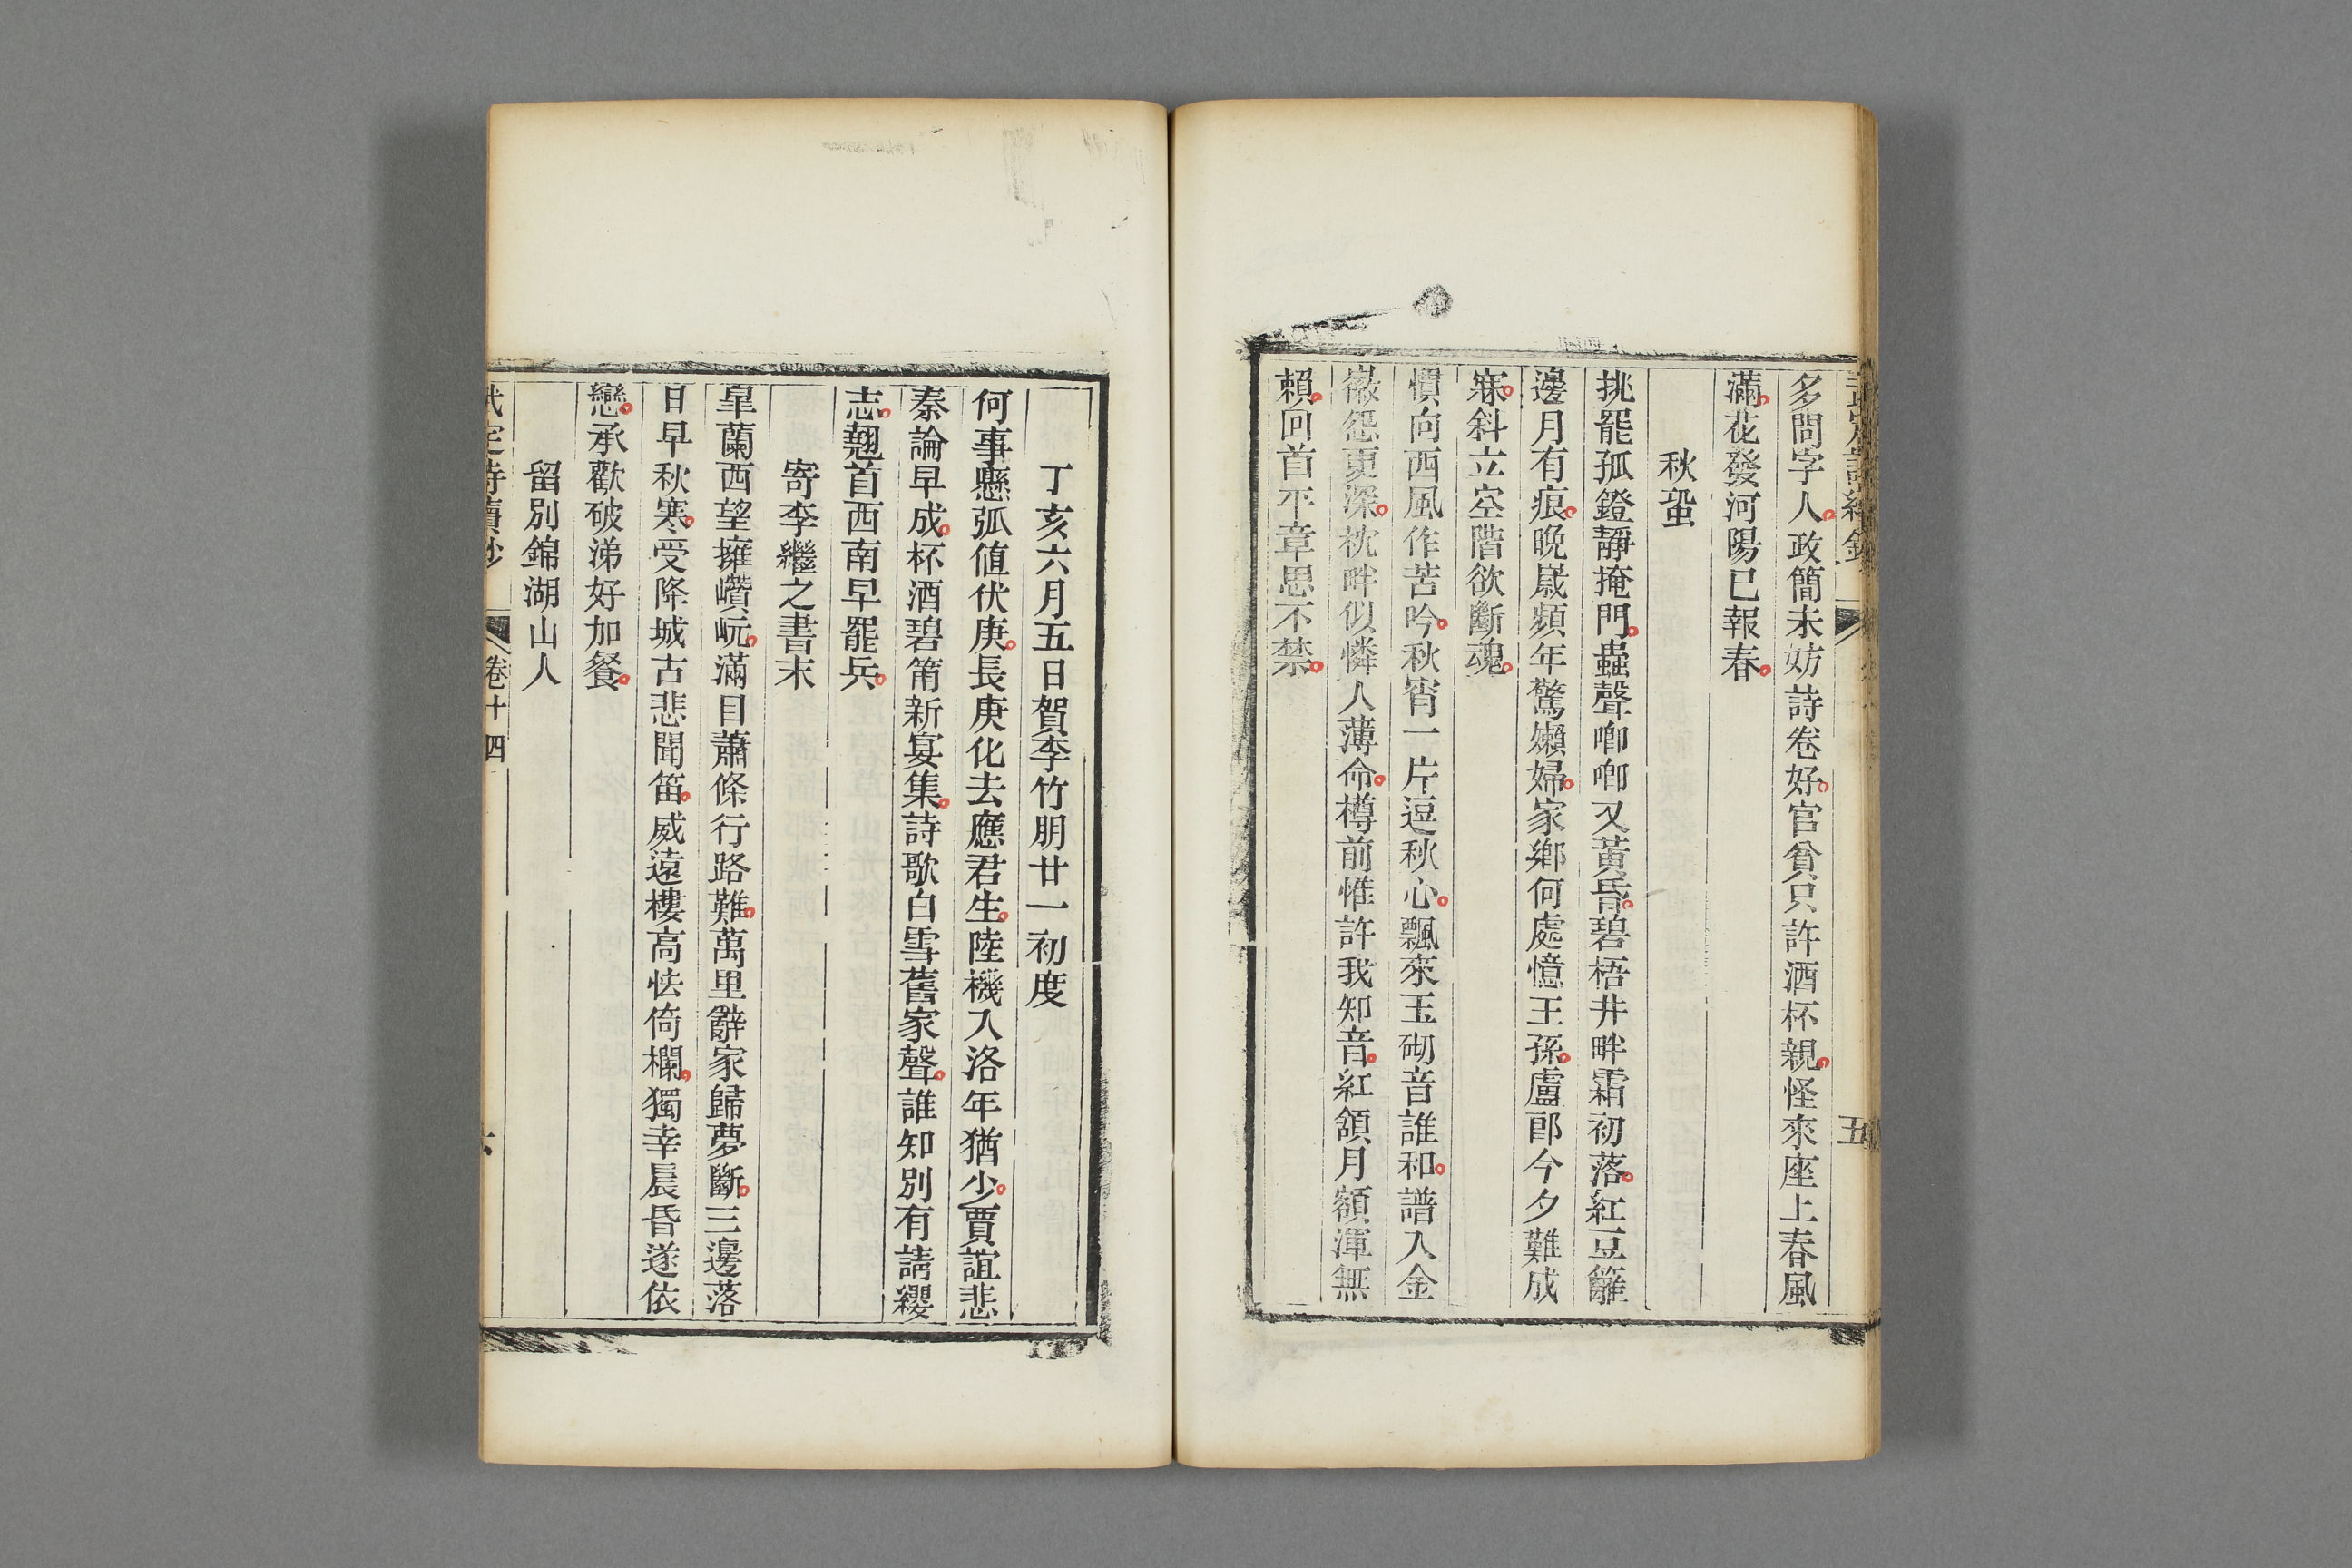 五
多問字人政簡未妨詩卷好官貧只許酒杯親怪來座上春風
滿花發河陽已報春
秋蛩
挑罷孤鐙靜掩門蟲聲啣啣又黃昏碧梧井畔霜初落紅豆籬
邊月有痕晚嵗頻年驚嬾婦家鄉何處憶王孫盧郎今夕難成
寐斜立空階欲斷魂
慣向西風作苦吟秋宵一片逗秋心飄來玉砌音誰和譜入金
徽怨更深枕畔似憐人薄命樽前惟許我知音紅頷月額渾無
賴回首平章思不禁
丁亥六月五日賀李竹朋廿一初度
何事懸弧值伏庚長庚化去應君生陸機入洛年猶少賈誼悲
秦論早成杯酒碧筩新宴集詩歌白雪舊家聲誰知別有請纓
志翹首西南早罷兵
寄李繼之書末
皐蘭西望擁巑岏滿目蕭條行路難萬里辭家歸夢斷三邊落
日早秋寒受降城古悲聞笛威遠樓高怯倚欄獨幸晨昏遂依
戀承歡破涕好加餐
留別錦湖山人
武定詩續鈔 卷十四 六